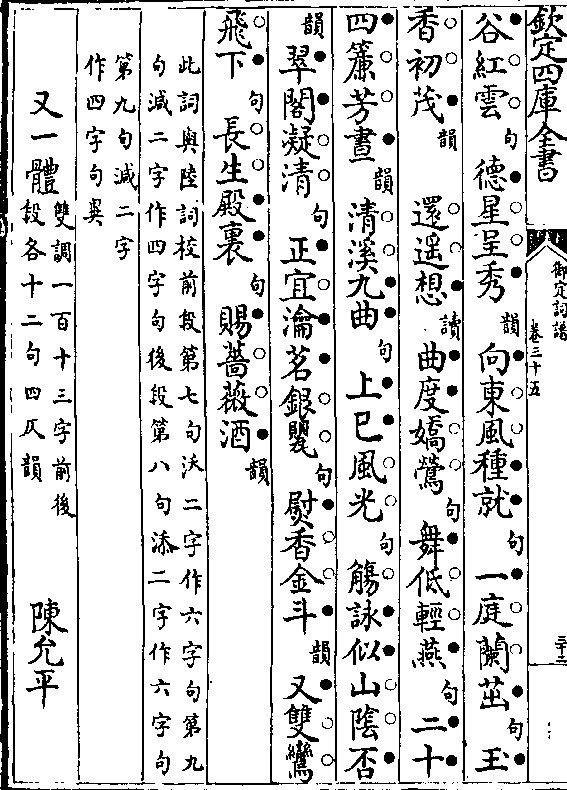 欽定四庫全書
御定詞譜
卷三十五
三十三
谷紅雲句德星呈秀韻向東風種就句一庭蘭茁句玉
香初茂韻還遥想讀曲度嬌鶯句舞低輕燕句二十
四簾芳晝韻清溪九曲句上巳風光句觴詠似山陰否
韻翠閣凝清句正宜瀹茗銀甖句熨香金斗韻又雙鸞
飛下句長生殿裏句賜薔薇酒韻
此詞與陸詞校前段第七句添二字作六字句第九
句減二字作四字句後段第八句添二字作六字句
第九句減二字
作四字句異
又一體雙調一百十三字前後
段各十二句四仄韻陳允平